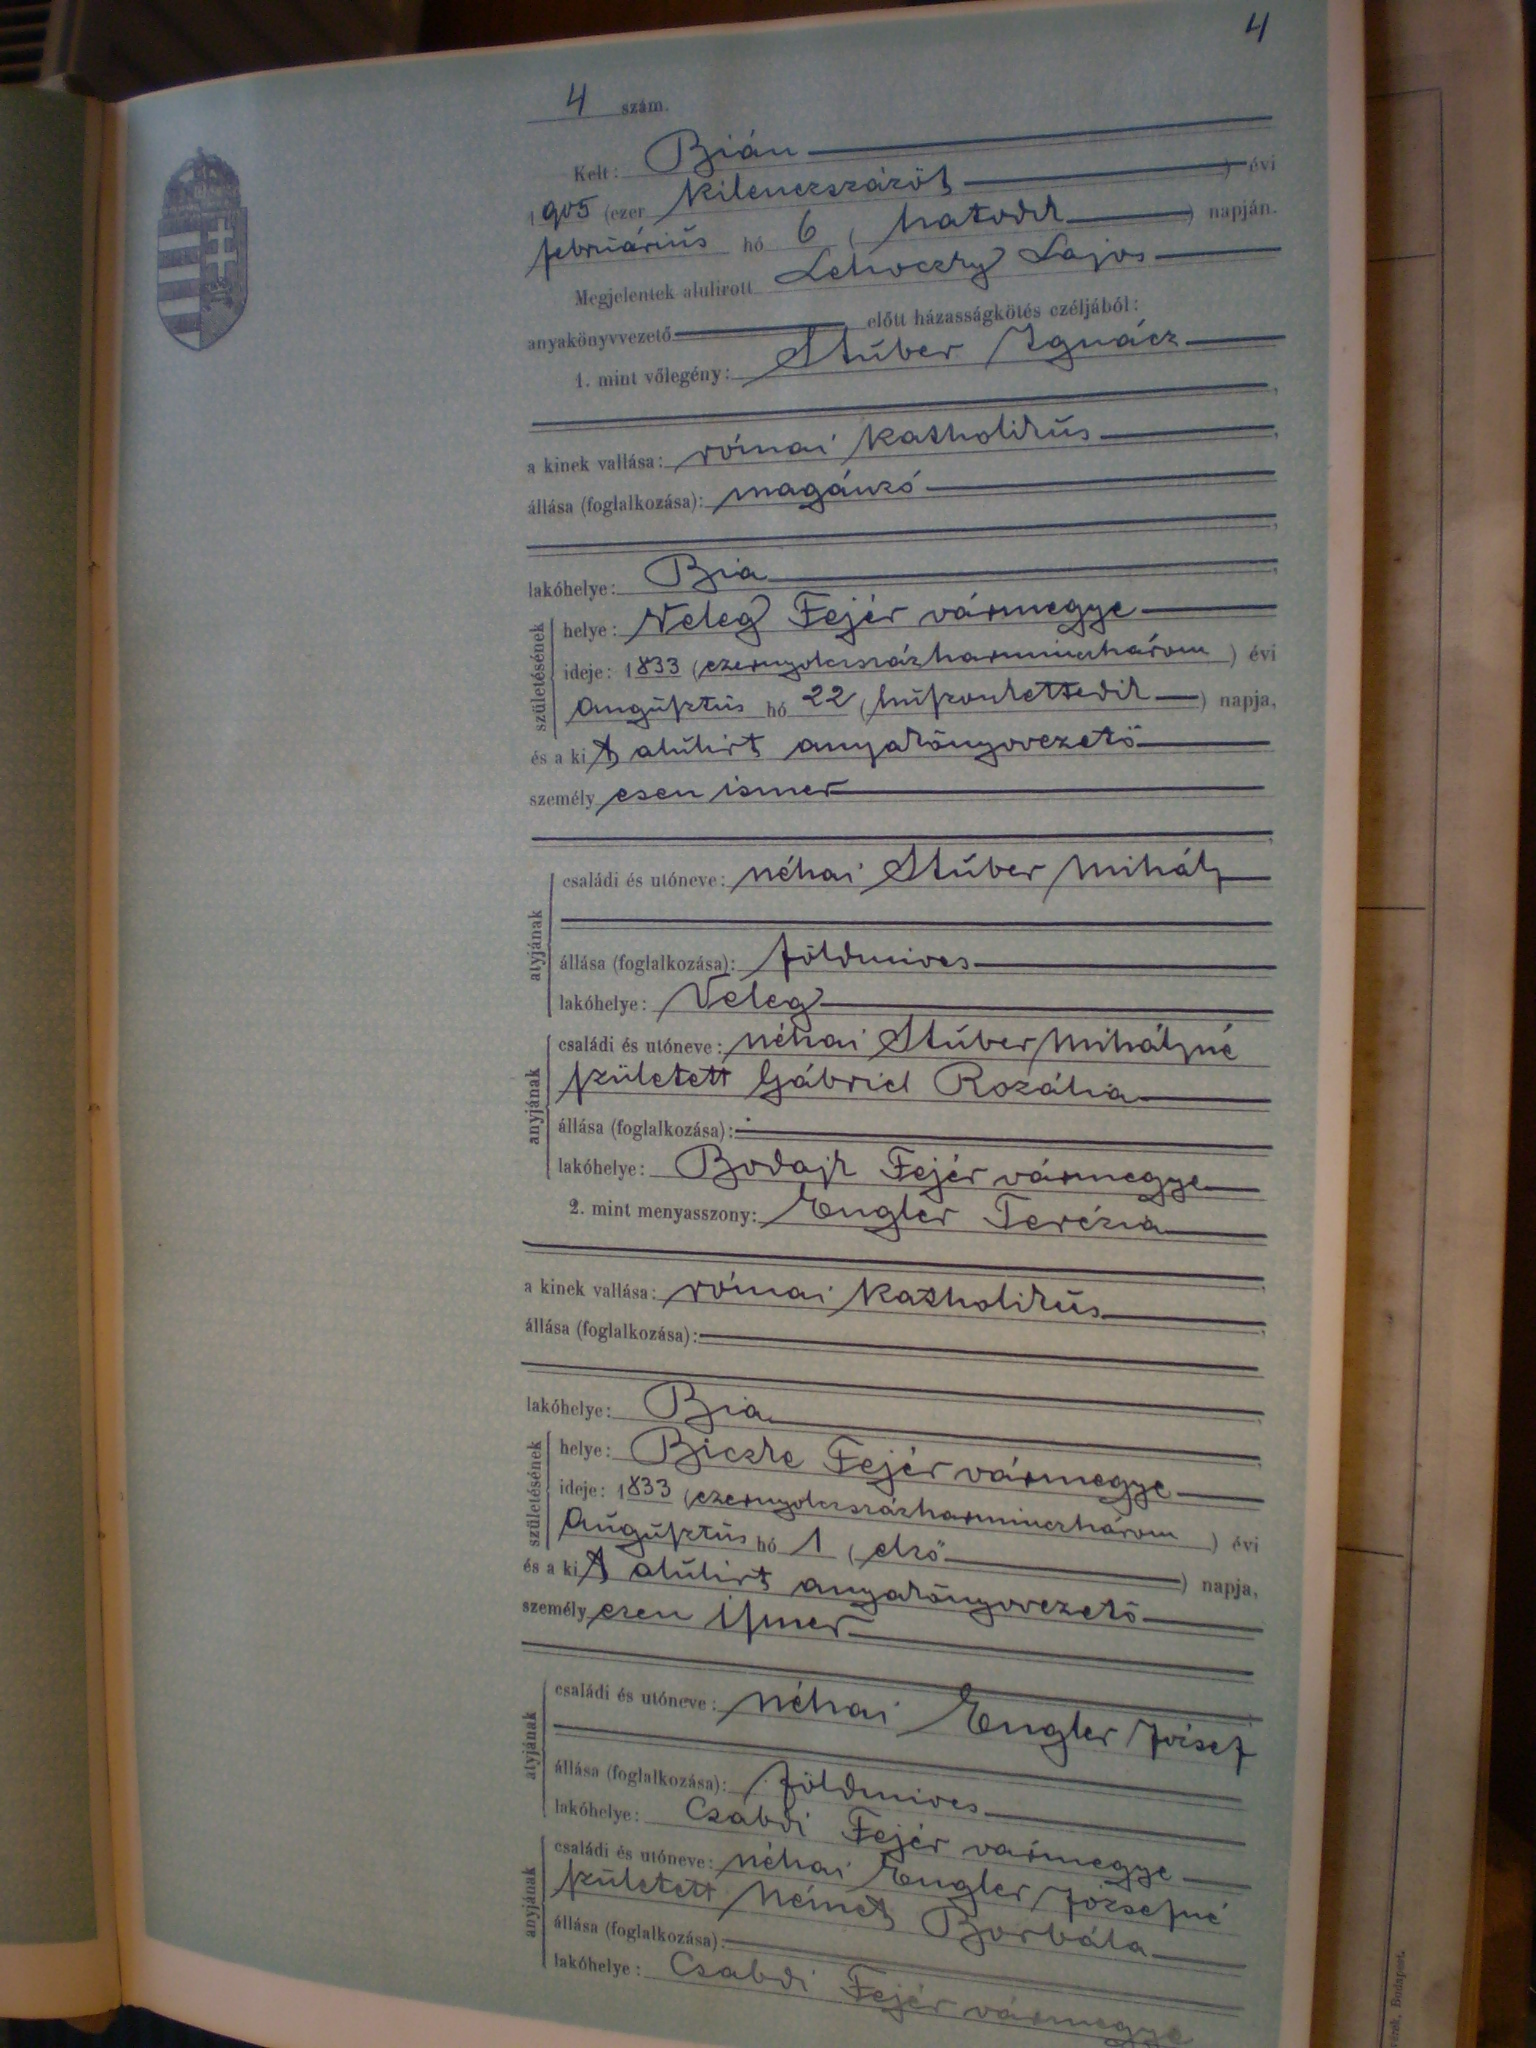 4
4 szám.
Kelt: Bián
1905 (ezer kilenczszázöt ) évi
februárius hó 6 ( hatodik ) napján.
Megjelentek alulirott Lehoczky Lajos
anyakönyvvezető előtt házasságkötés czéljából:
1. mint vőlegény: Stúber Ignácz
a kinek vallása: római katholikus
állása (foglalkozása): magánzó
lakóhelye: Bia
születésének
helye: Veleg Fejér vármegye
ideje: 1833 (ezernyolczszázharminczhárom ) évi
augusztus hó 22 (huszonkettedik ) napja,
és a kit alulirt anyakönyvvezető
személyesen ismer
atyjának
családi és utóneve: néhai Stúber Mihály
állása (foglalkozása): földmives
lakóhelye: Veleg
anyjának
családi és utóneve: néhai Stúber Mihályné
született Gábriel Rozália
állása (foglalkozása):
lakóhelye: Bodajk Fejér vármegye
2. mint menyasszony: Engler Terézia
a kinek vallása: római katholikus
állása (foglalkozása):
lakóhelye: Bia
születésének
helye: Bicske Fejér vármegye
ideje: 1833 (ezernyolczszázharminczhárom ) évi
augusztus hó 1 ( első ) napja,
és a kit alulirt anyakönyvvezető
személyesen ismer
atyjának
családi és utóneve: néhai Engler József
állása (foglalkozása): földmives
lakóhelye: Csabdi Fejér vármegye
anyjának
családi és utóneve: néhai Engler Józsefné
született Német Borbála
állása (foglalkozása):
lakóhelye: Csabdi Fejér vármegye
Budapest.